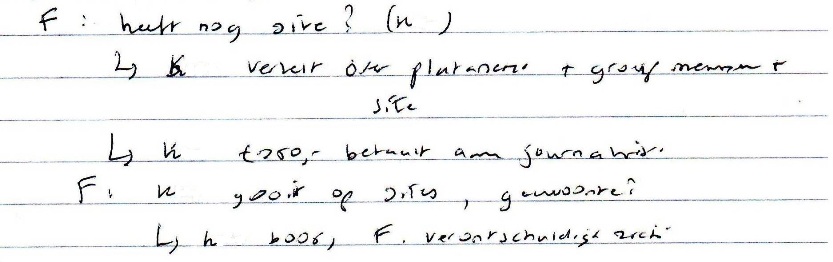 F : heeft nog site? (K )
↳ K vertelt over plutanene + groep mensen +
site
↳ K €250,- betaalt aan journalist.
F: K gooit op sites, gewoonte?
↳ K boos, F. verontschuldigt zich